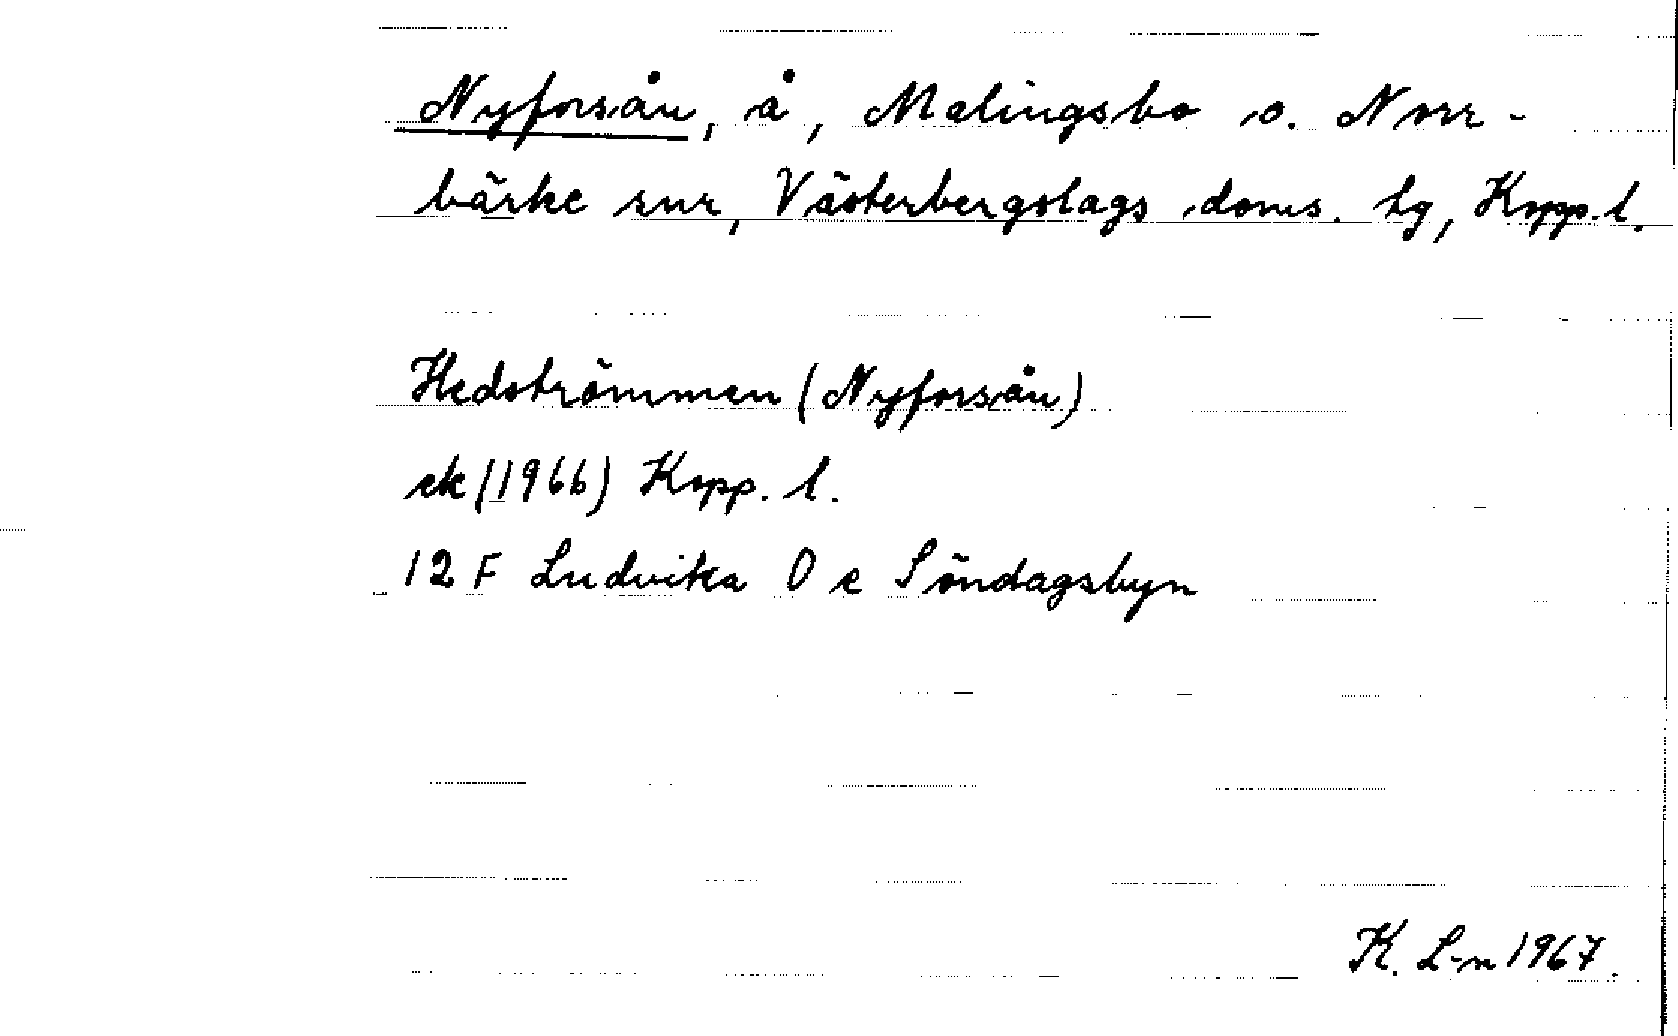 Nyforsån, å, Malingsbo o. Norr-
bärke snr, Västerbergslags doms. tg, Kopp. l.
Hedströmmen (Nyforsån)
ek (1966) Kopp. l.
12 F Ludvika 0 e Söndagsbyn
K. L-n 1967.